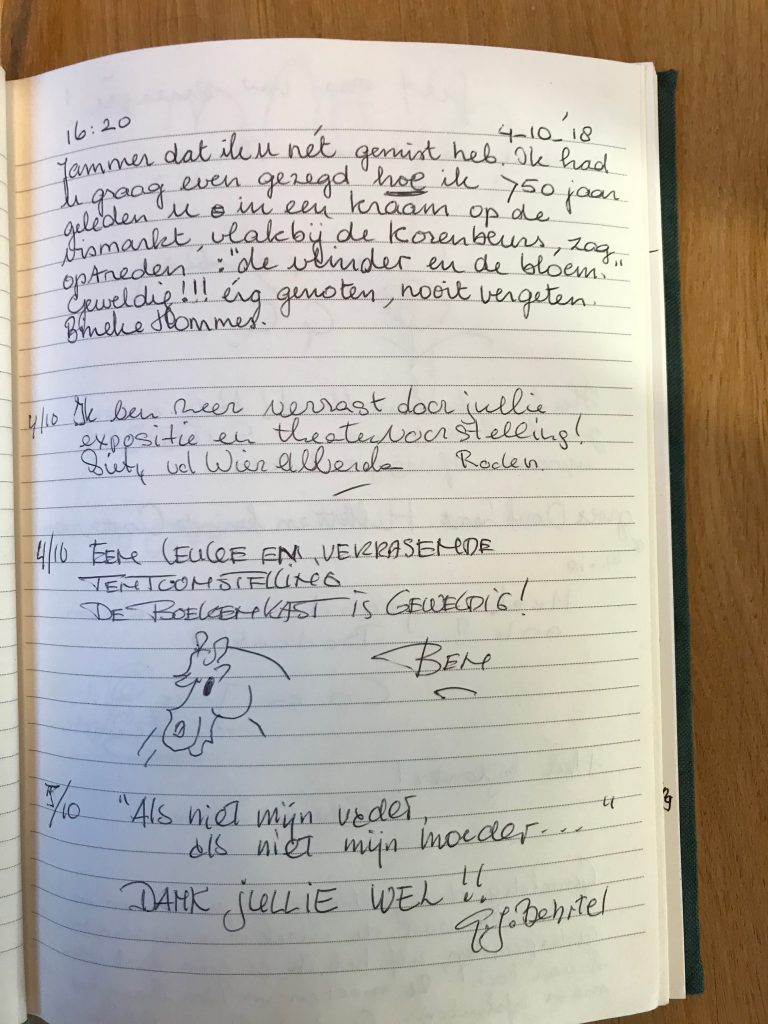 16:20 4-10-'18
Jammer dat ik u nét gemist heb. Ik had
u graag even gezegd hoe ik >50 jaar
geleden u in een kraam op de
vismarkt, vlakbij de Korenbeurs, zag
optreden : "de vlinder en de bloem."
Geweldig!!! érg genoten, nooit vergeten.
Bineke Hommes.
4/10 Ik ben zeer verrast door jullie
expositie en theatervoorstelling!
vd Wier Alberda Roden.
4/10 EEN LEUKE EN VERRASENDE
TENTOONSTELLING
DE BOEKENKAST IS GEWELDIG!
BEN
5/10 "Als niet mijn vader,
als niet mijn moeder... "
DANK JULLIE WEL !!